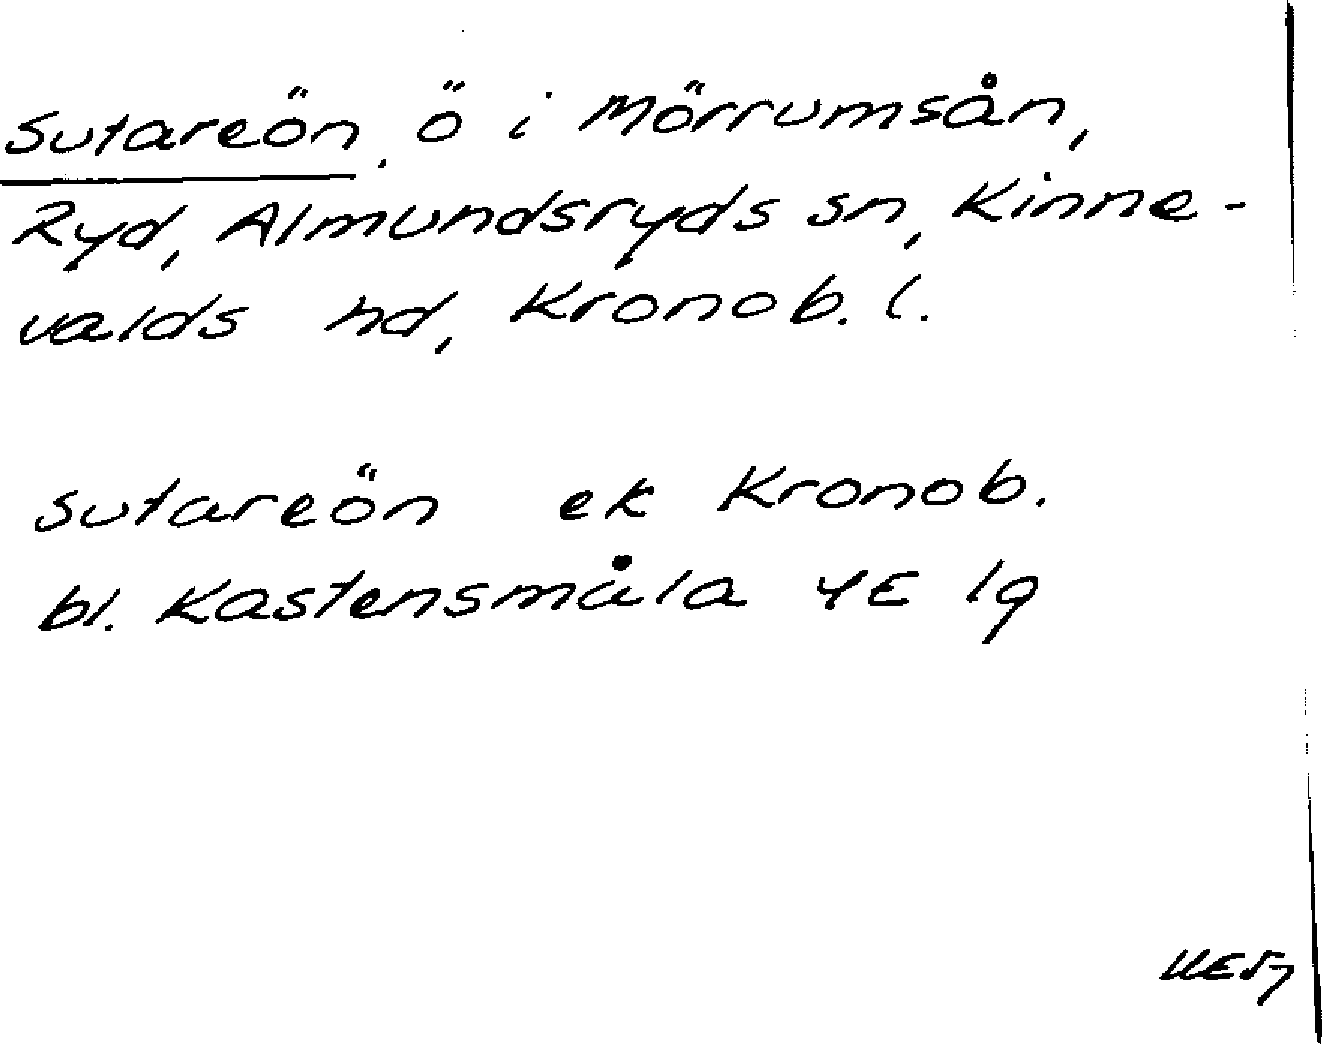 Sutareön, ö i Mörrumsån,
Ryd, Almundsryds sn, Kinne-
valds hd, Kronob. l.
Sutareön ek Kronob.
bl. Kastensmåla 4E 1g